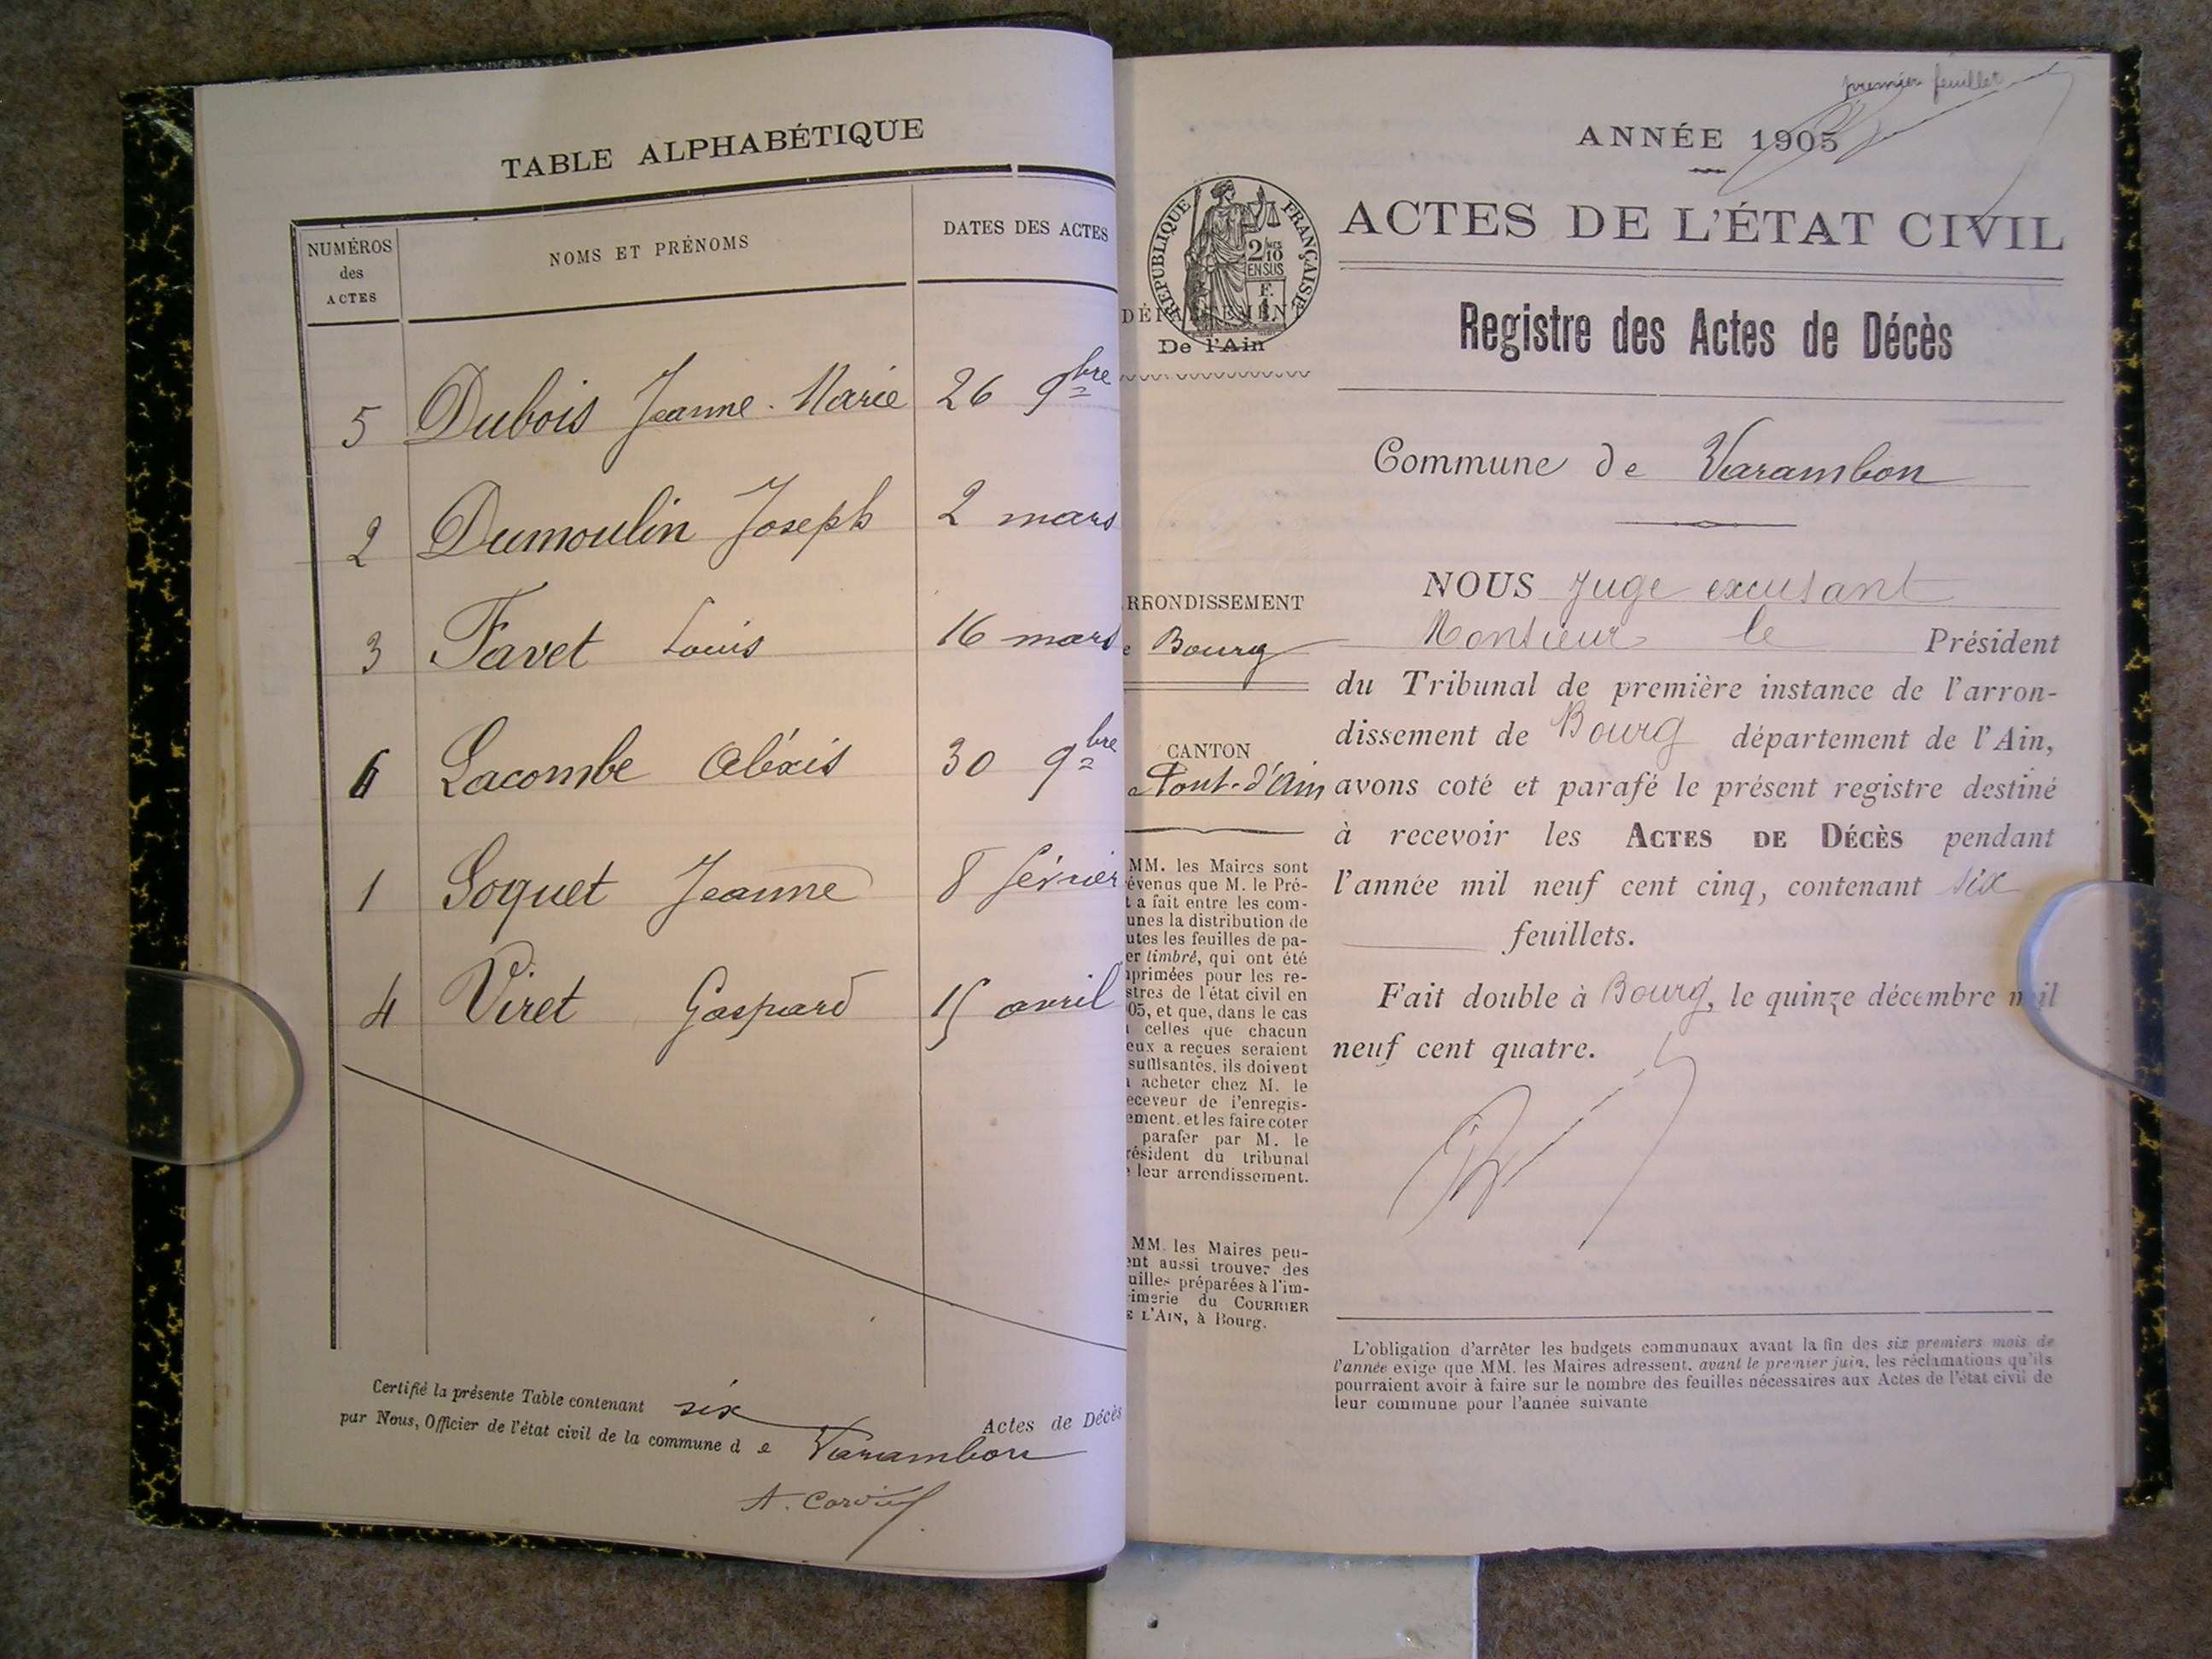 TABLE ALPHABÉTIQUE
NUMÉROS des ACTES
NOMS ET PRÉNOMS
DATES DES ACTES
5 Dubois Jeanne-Marie 26 9bre
2 Dumoulin Joseph 2 mars
3 Favet Louis 16 mars
6 Lacombe Aléxis 30 9bre
1 Soquet Jeanne 8 février
4 Viret Gaspard 15 avril
Certifié la présente Table contenant six Actes de Décès
par Nous, Officier de l'état civil de la commune d e Varambon
premier feuillet
ANNÉE 1905
RÉPUBLIQUE FRANÇAISE
2/10
EN SUS
ACTES DE L'ÉTAT CIVIL
DÉPARTEMENT
De l'Ain
Registre des Actes de Décès
Commune de Varambon
RRONDISSEMENT
e Bourg
CANTON
Pont-d'Ain
MM. les Maires sont
évenus que M. le Pré-
t a fait entre les com-
unes la distribution de
utes les feuilles de pa-
er timbré, qui ont été
primées pour les re-
stres de l'état civil en
05, et que, dans le cas
celles que chacun
eux a reçues seraient
suffisantes, ils doivent
acheter chez M. le
eceveur de l'enregis-
ement, et les faire coter
parafer par M. le
résident du tribunal
e leur arrondissement.
MM. les Maires peu-
ent aussi trouver des
uilles préparées à l'im-
imerie du COURRIER
E L'AIN, à Bourg.
NOUS Juge excusant
Monsieur le Président
du Tribunal de première instance de l'arron-
dissement de Bourg département de l'Ain,
avons coté et parafé le présent registre destiné
à recevoir les ACTES DE DÉCÈS pendant
l'année mil neuf cent cinq, contenant six
feuillets.
Fait double à Bourg, le quinze décembre mil
neuf cent quatre.
L'obligation d'arrêter les budgets communaux avant la fin des six premiers mois de
l'année exige que MM. les Maires adressent, avant le premier juin, les réclamations qu'ils
pourraient avoir à faire sur le nombre des feuilles nécessaires aux Actes de l'état civil de
leur commune pour l'année suivante